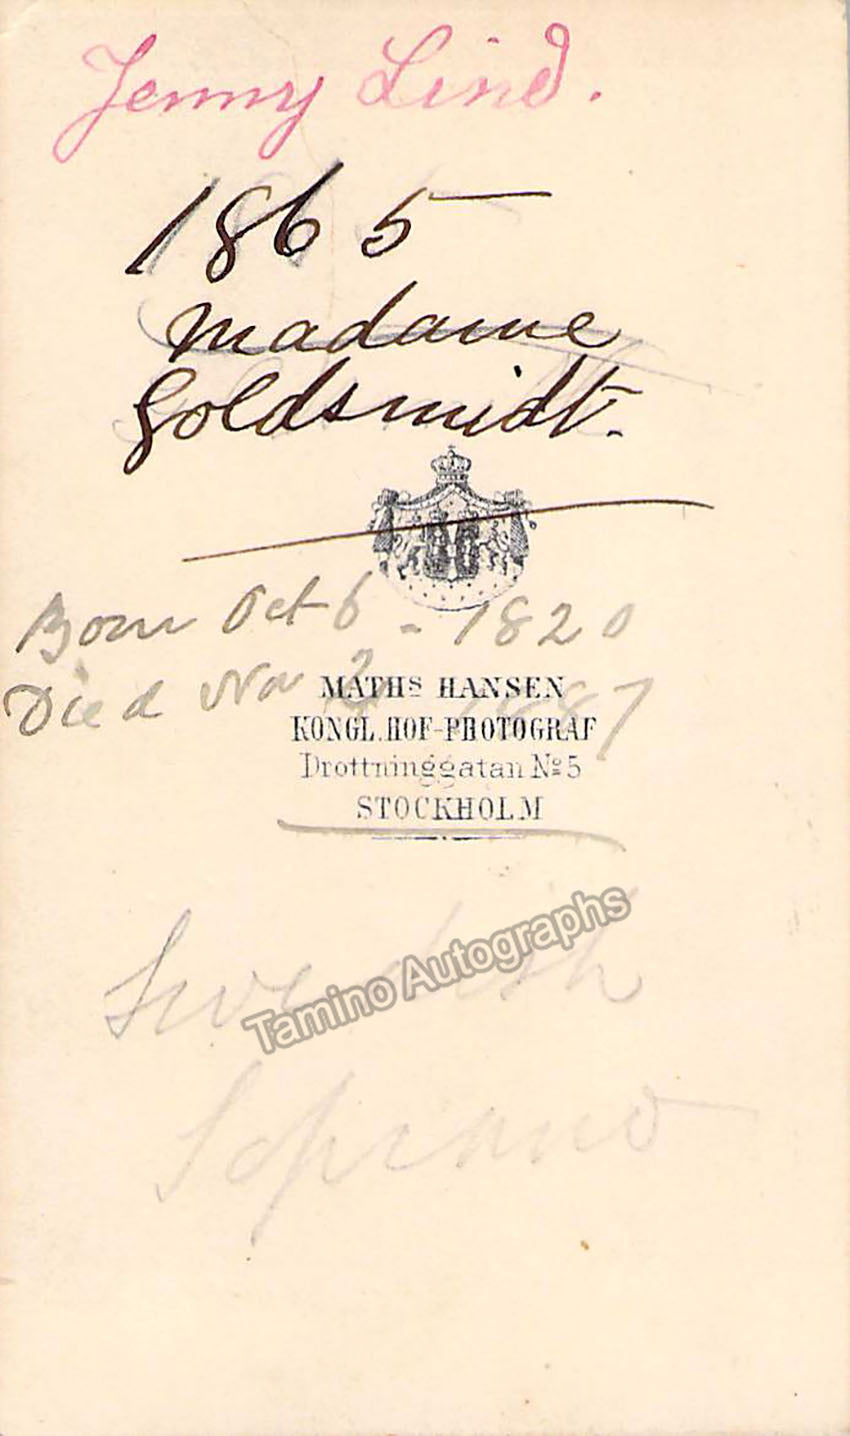 Jenny Lind.
1865
Madame
Goldsmidt.
Born Oct 6 - 1820
Died Nov 2 1887
MATHS HANSEN
KONGL. HOF-PHOTOGRAF
Drottninggatan No 5
STOCKHOLM
Swedish
Tamino Autographs
Soprano